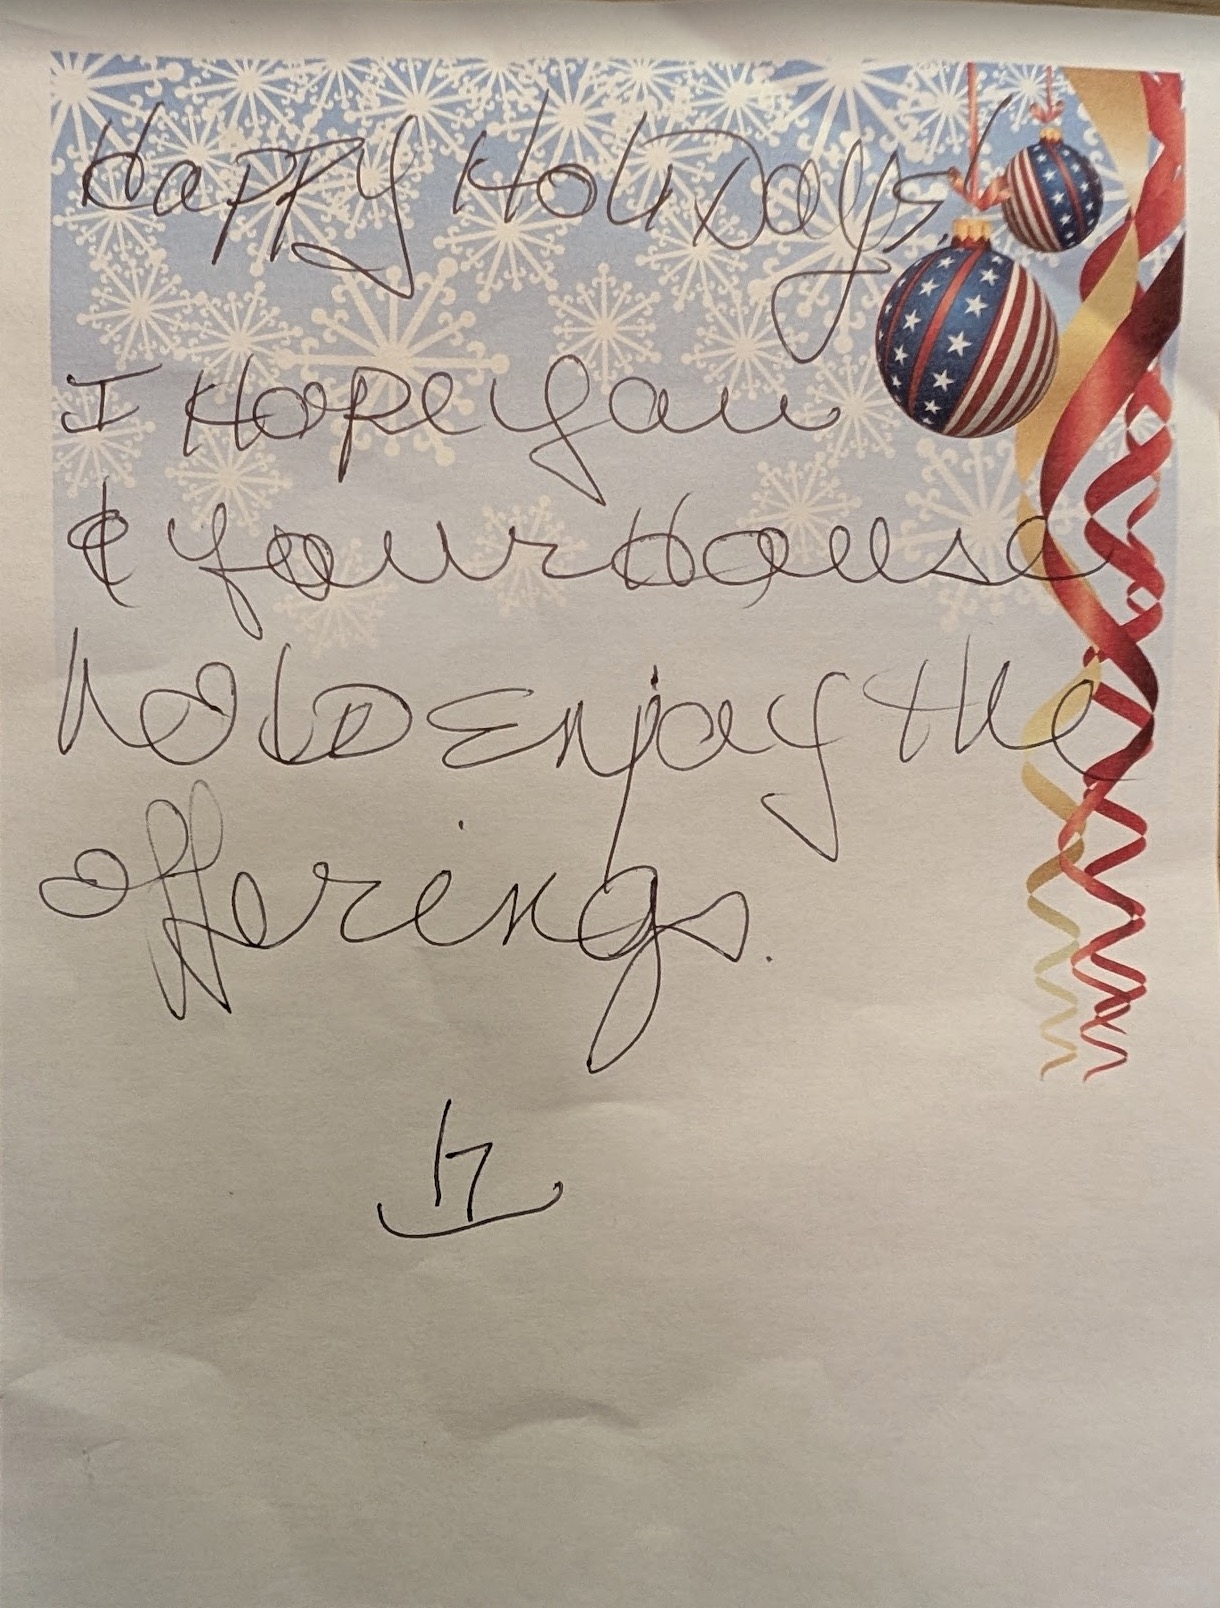 Happy Holidays!
I Hope you
& your House
hold Enjoy the
offerings.